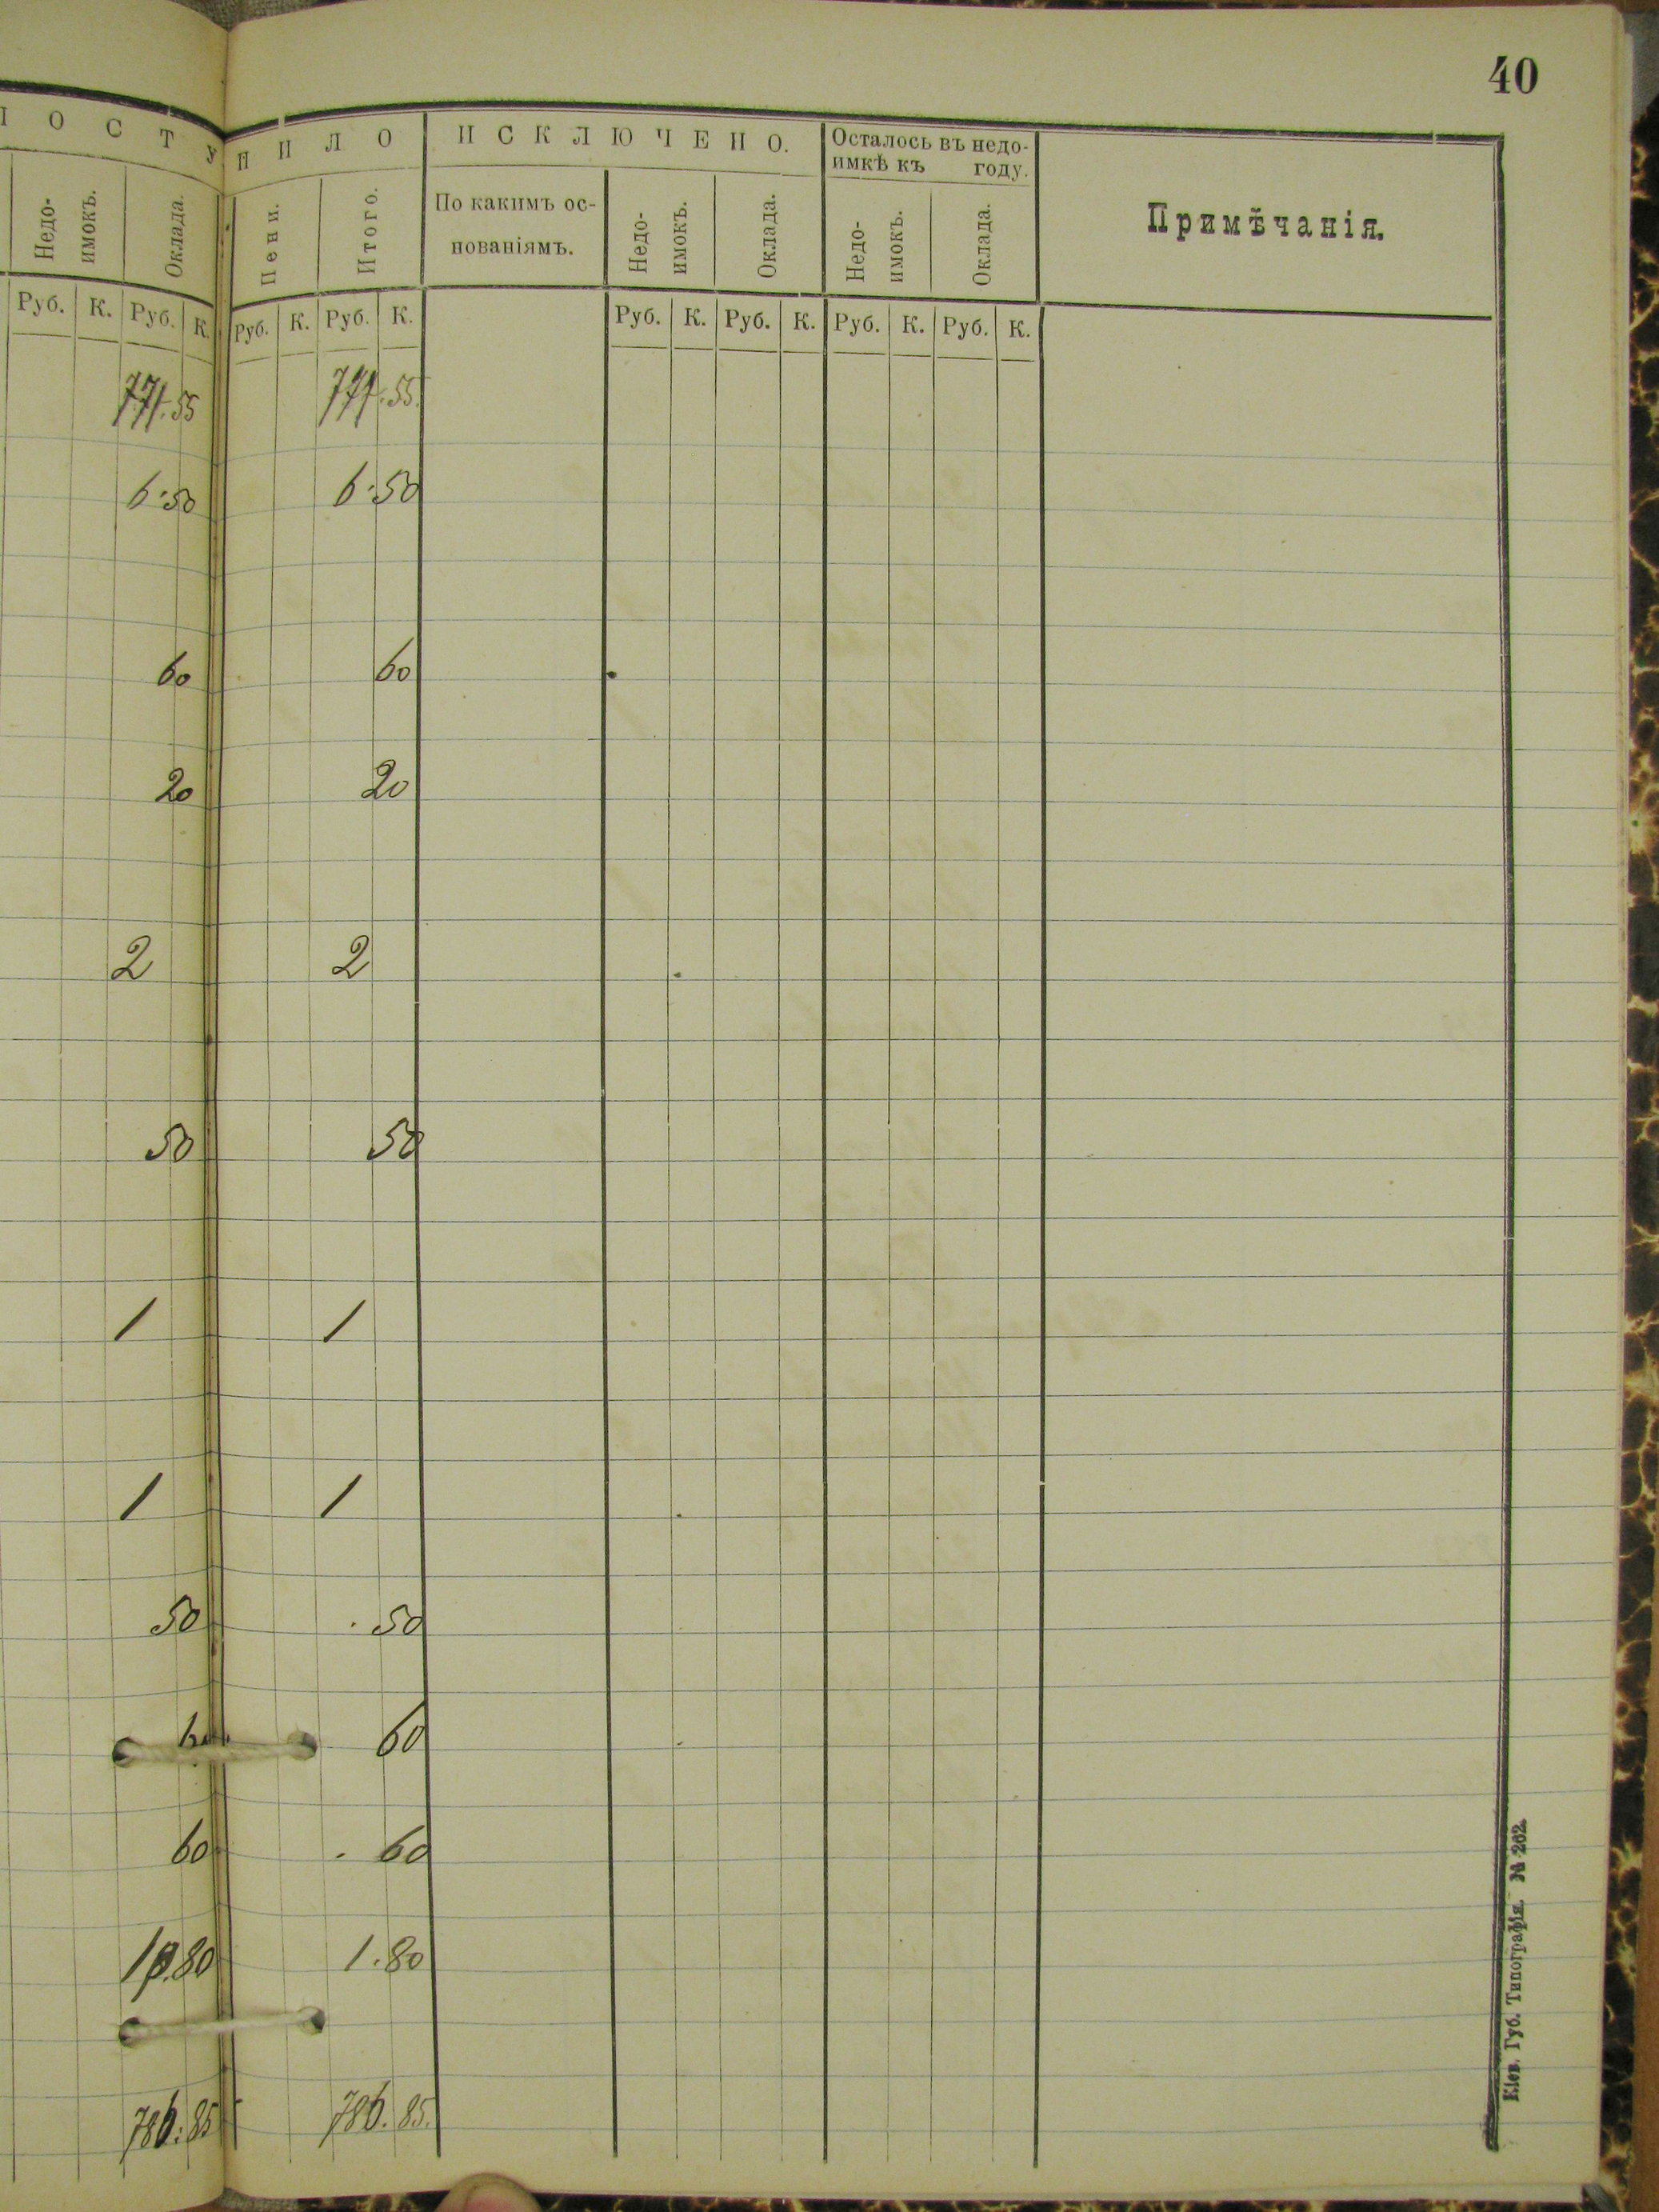 40
П О С Т У П И Л О
И С К Л Ю Ч Е Н О.
Осталось въ недо-
имкѣ къ году.
Недо-
имокъ.
Оклада.
Пени.
Итого.
По какимъ ос-
нованіямъ.
Недо-
имокъ.
Оклада.
Недо-
имокъ.
Оклада.
Примѣчанія.
Руб. К. Руб. К. Руб. К. Руб. К. Руб. К. Руб. К. Руб. К. Руб. К.
771.55 771.55.
6.50 6.50
60 60
20 20
2 2
50 50
1 1
1 1
50 50
60 60
60 60
1р.80 1.80
786.85 786.85.
Кіев. Губ. Типографія. № 262.